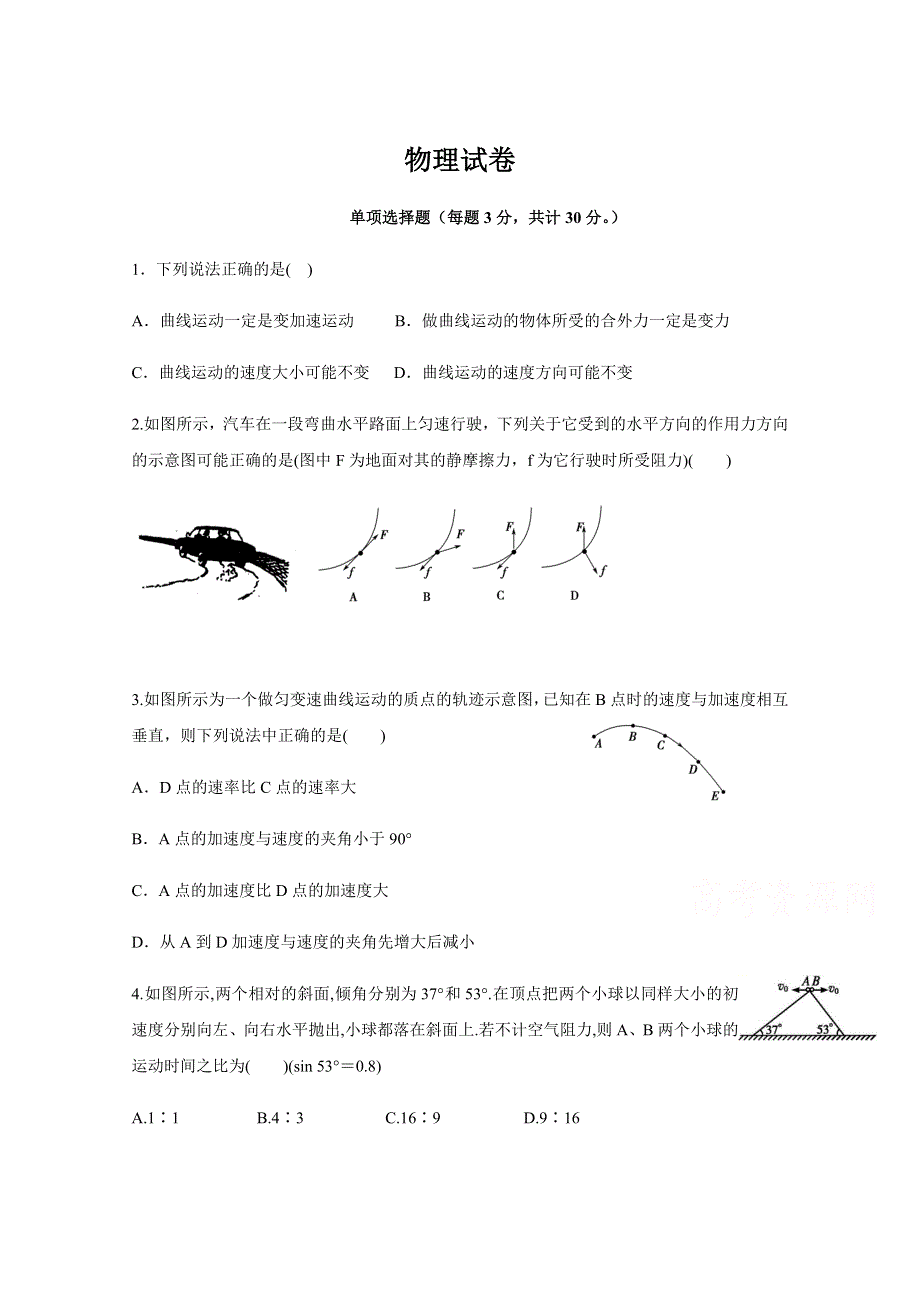 物理试卷
单项选择题（每题3分，共计30分。）
1．下列说法正确的是( )
A．曲线运动一定是变加速运动 B．做曲线运动的物体所受的合外力一定是变力
C．曲线运动的速度大小可能不变 D．曲线运动的速度方向可能不变
2.如图所示，汽车在一段弯曲水平路面上匀速行驶，下列关于它受到的水平方向的作用力方向
的示意图可能正确的是(图中F为地面对其的静摩擦力，f为它行驶时所受阻力)( )
F f F f F f F f
A B C D
3.如图所示为一个做匀变速曲线运动的质点的轨迹示意图，已知在B点时的速度与加速度相互
垂直，则下列说法中正确的是( )
A B C D E
A．D点的速率比C点的速率大
B．A点的加速度与速度的夹角小于90°
C．A点的加速度比D点的加速度大
高考资源网
D．从A到D加速度与速度的夹角先增大后减小
4.如图所示,两个相对的斜面,倾角分别为37°和53°.在顶点把两个小球以同样大小的初
速度分别向左、向右水平抛出,小球都落在斜面上.若不计空气阻力,则A、B两个小球的
运动时间之比为( )(sin 53°＝0.8)
v₀ A B v₀
37° 53°
A.1∶1 B.4∶3 C.16∶9 D.9∶16